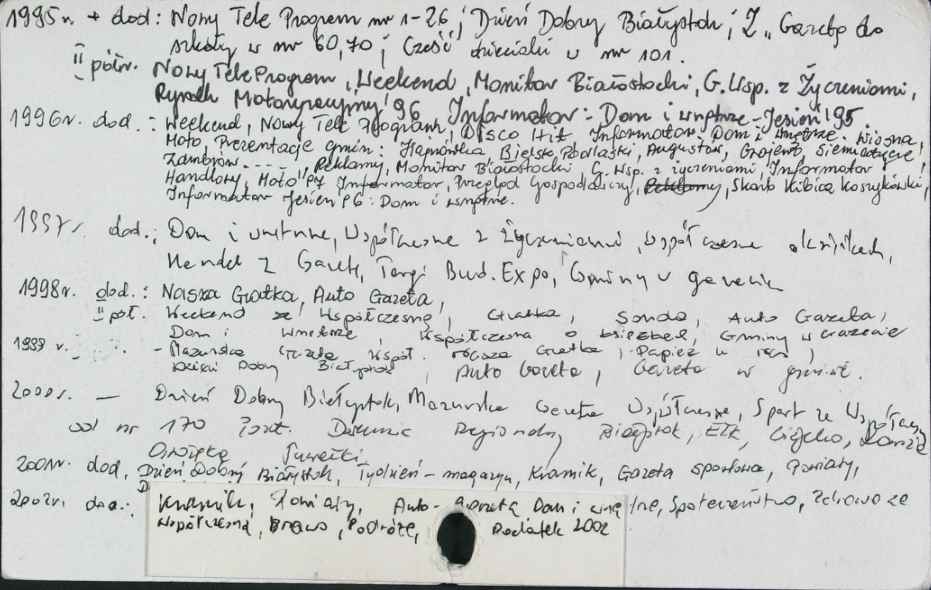 1995 r. + dod: Nowy Tele Program nr 1-26; Dzień Dobry Białystok; Z „Gazetą do
szkoły w nr 60,70; Cześć dzieciaki w nr 101.
II półr. Nowy TeleProgram, Weekend, Monitor Białostocki, G. Wsp. z Życzeniami,
Rynek Motoryzacyjny '96 Informator: Dom i wnętrze - Jesień '95.
1996r. dod.: Weekend, Nowy Tele Program, Disco Hit Informator Dom i wnętrze. Wiosna,
Moto, Prezentacje gmin: Hajnówka Bielsk Podlaski, Augustów, Grajewo Siemiatycze
Zambrów.... Reklamy, Monitor Białostocki G. Wsp. z życzeniami, Informator
Handlowy, Moto Informator, Przegląd Gospodarczy, Skarb Kibica Koszykówki,
Informator Jesień 96: Dom i wnętrze.
1997r. dod.: Dom i wnętrze, Współczesna z Życzeniami, Współczesna o książkach,
Handel z Gazetą, Targi Bud. Expo, Gminy w gazecie
1998r. dod.: Nasza Gratka, Auto Gazeta,
II pół. Weekend ze Współczesną, Gratka, Sonda, Auto Gazeta,
Dom i Wnętrze, Współczesna o książkach, Gminy w Gazecie
1999 r. - Mazurska Gazeta Współ. Gratka, Papież w
Dzień Dobry Białystok, Auto Gazeta, Gazeta w
2000r. - Dzień Dobry Białystok, Mazurska Gazeta Współczesna, Sport ze Współczesną
od nr 170 Dziennik Regionalny Białystok, Ełk, Łomża
Suwałki
2001r. dod. Dzień Dobry Białystok, Tydzień - magazyn, Kramik, Gazeta sportowa, Powiaty,
2002r. dod.: Kramik, Powiaty, Auto-Gazeta Dom i wnętrze, Społeczeństwo, Zdrowo ze
Współczesną, Brawo, Podróże, Dodatek 2002